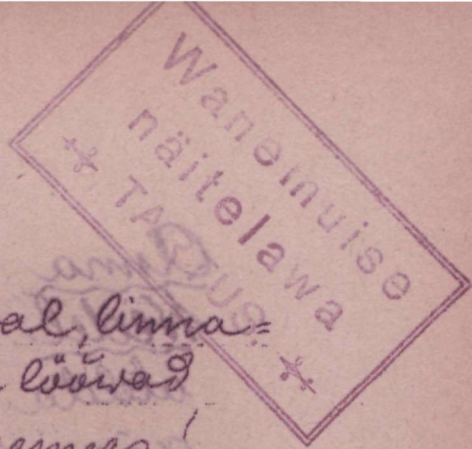 Wanemuise
näitelawa
TARTUS
al, linna=
lööwad